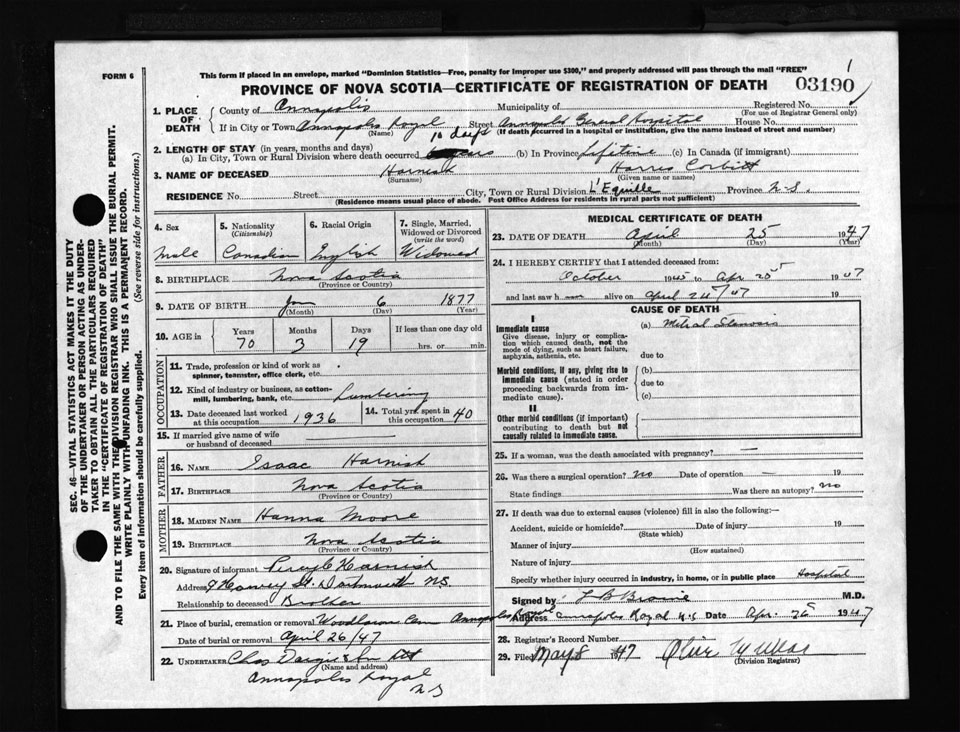 FORM 6
This form if placed in an envelope, marked "Dominion Statistics—Free, penalty for improper use $300," and properly addressed will pass through the mail "FREE"
1
PROVINCE OF NOVA SCOTIA—CERTIFICATE OF REGISTRATION OF DEATH
03190
1. PLACE OF DEATH
County of Annapolis Municipality of Registered No.
(For use of Registrar General only)
If in City or Town Annapolis Royal Street Annapolis General Hospital House No.
(Name) (If death occurred in a hospital or institution, give the name instead of street and number)
10 days
2. LENGTH OF STAY (in years, months and days)
(a) In City, Town or Rural Division where death occurred years (b) In Province Lifetime (c) In Canada (if immigrant)
3. NAME OF DECEASED Harnish Harris Corbitt
(Surname) (Given name or names)
RESIDENCE No. Street City, Town or Rural Division L'Equille Province N.S.
(Residence means usual place of abode. Post Office Address for residents in rural parts not sufficient)
4. Sex 5. Nationality (Citizenship) 6. Racial Origin 7. Single, Married, Widowed or Divorced (write the word)
Male Canadian English Widowed
8. BIRTHPLACE Nova Scotia
(Province or Country)
9. DATE OF BIRTH Jan 6 1877
(Month) (Day) (Year)
10. AGE in Years Months Days If less than one day old
70 3 19 hrs. or min.
OCCUPATION
11. Trade, profession or kind of work as spinner, teamster, office clerk, etc.
12. Kind of industry or business, as cotton-mill, lumbering, bank, etc. Lumbering
13. Date deceased last worked at this occupation 1936 14. Total yrs. spent in 40
15. If married give name of wife or husband of deceased
FATHER
16. NAME Isaac Harnish
17. BIRTHPLACE Nova Scotia
(Province or Country)
MOTHER
18. MAIDEN NAME Hanna Moore
19. BIRTHPLACE Nova Scotia
(Province or Country)
20. Signature of informant Harnish
Address St. Dartmouth N.S.
Relationship to deceased Brother
21. Place of burial, cremation or removal Woodlawn Cem Annapolis Royal
Date of burial or removal April 26/47
22. UNDERTAKER Chas Dargie & Son Ltd
(Name and address)
Annapolis Royal
N S
MEDICAL CERTIFICATE OF DEATH
23. DATE OF DEATH April 25 1947
(Month) (Day) (Year)
24. I HEREBY CERTIFY that I attended deceased from:
October 1945 to Apr 25 1947
and last saw h alive on April 24/47
CAUSE OF DEATH
I
Immediate cause (a) Mitral Stenosis
Give disease, injury or complication which caused death, not the mode of dying, such as heart failure, asphyxia, asthenia, etc.
due to
Morbid conditions, if any, giving rise to immediate cause (stated in order proceeding backwards from immediate cause).
(b)
due to
(c)
II
Other morbid conditions (if important) contributing to death but not causally related to immediate cause.
25. If a woman, was the death associated with pregnancy? —
26. Was there a surgical operation? No Date of operation — 19
State findings Was there an autopsy? No
27. If death was due to external causes (violence) fill in also the following:—
Accident, suicide or homicide? Date of injury 19
(State which)
Manner of injury
(How sustained)
Nature of injury
Specify whether injury occurred in industry, in home, or in public place Hospital
Signed by M.D.
Address Annapolis Royal N.S Date Apr. 26 1947
28. Registrar's Record Number
29. Filed May 8 1947
(Division Registrar)
SEC. 46—VITAL STATISTICS ACT MAKES IT THE DUTY
OF THE UNDERTAKER OR PERSON ACTING AS UNDER-
TAKER TO OBTAIN ALL THE PARTICULARS REQUIRED
IN THE "CERTIFICATE OF REGISTRATION OF DEATH"
AND TO FILE THE SAME WITH THE DIVISION REGISTRAR WHO SHALL ISSUE THE BURIAL PERMIT.
WRITE PLAINLY WITH UNFADING INK. THIS IS A PERMANENT RECORD.
Every item of information should be carefully supplied. (See reverse side for instructions.)